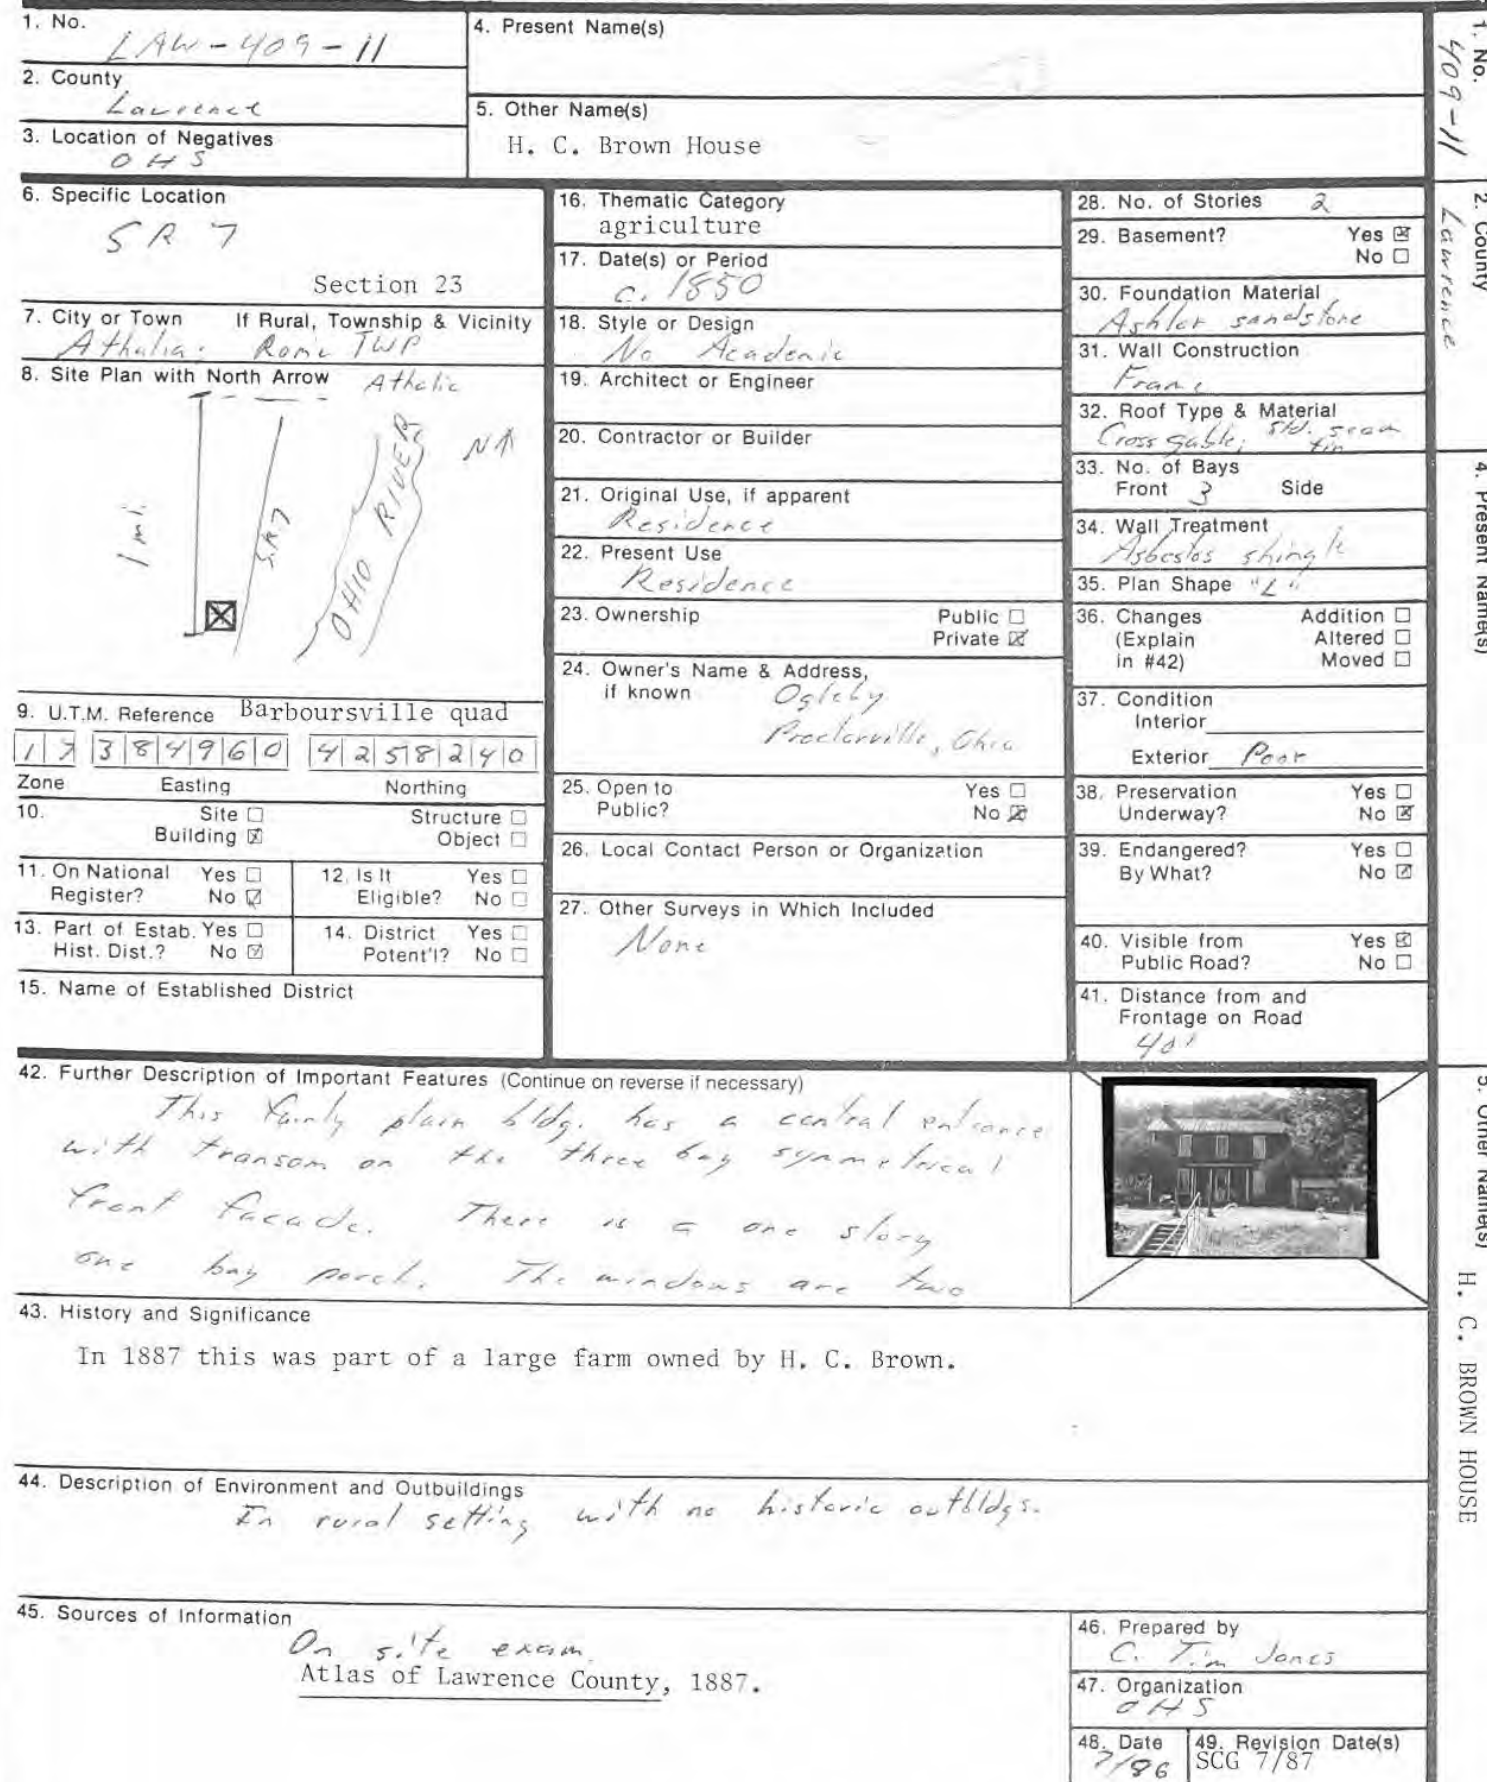 1. No.
LAW-409-11
2. County
Lawrence
3. Location of Negatives
OHS
4. Present Name(s)
5. Other Name(s)
H. C. Brown House
6. Specific Location
SR 7
Section 23
7. City or Town If Rural, Township & Vicinity
Athalia; Rome TWP
8. Site Plan with North Arrow
Athalia
1 mi.
S.R.7
OHIO RIVER
N
9. U.T.M. Reference Barboursville quad
17 384960 4258240
Zone Easting Northing
10. Site Structure
Building Object
11. On National Yes
Register? No
12. Is It Yes
Eligible? No
13. Part of Estab. Yes
Hist. Dist.? No
14. District Yes
Potent'l? No
15. Name of Established District
16. Thematic Category
agriculture
17. Date(s) or Period
c. 1850
18. Style or Design
No Academic
19. Architect or Engineer
20. Contractor or Builder
21. Original Use, if apparent
Residence
22. Present Use
Residence
23. Ownership Public
Private
24. Owner's Name & Address,
if known Ogleby
Proctorville, Ohio
25. Open to Yes
Public? No
26. Local Contact Person or Organization
27. Other Surveys in Which Included
None
28. No. of Stories 2
29. Basement? Yes
No
30. Foundation Material
Ashlar sandstone
31. Wall Construction
Frame
32. Roof Type & Material
Cross gable; std. seam
tin
33. No. of Bays
Front 3 Side
34. Wall Treatment
Asbestos shingle
35. Plan Shape "L"
36. Changes Addition
(Explain Altered
in #42) Moved
37. Condition
Interior
Exterior Poor
38. Preservation Yes
Underway? No
39. Endangered? Yes
By What? No
40. Visible from Yes
Public Road? No
41. Distance from and
Frontage on Road
40'
42. Further Description of Important Features (Continue on reverse if necessary)
This fairly plain bldg. has a central entrance
with transom on the three bay symmetrical
front facade. There is a one story
one bay porch. The windows are two
43. History and Significance
In 1887 this was part of a large farm owned by H. C. Brown.
44. Description of Environment and Outbuildings
In rural setting with no historic outbldgs.
45. Sources of Information
On site exam.
Atlas of Lawrence County, 1887.
46. Prepared by
C. Tim Jones
47. Organization
OHS
48. Date
7/86
49. Revision Date(s)
SCG 7/87
1. No.
409-11
2. County
Lawrence
4. Present Name(s)
5. Other Name(s)
H. C. BROWN HOUSE